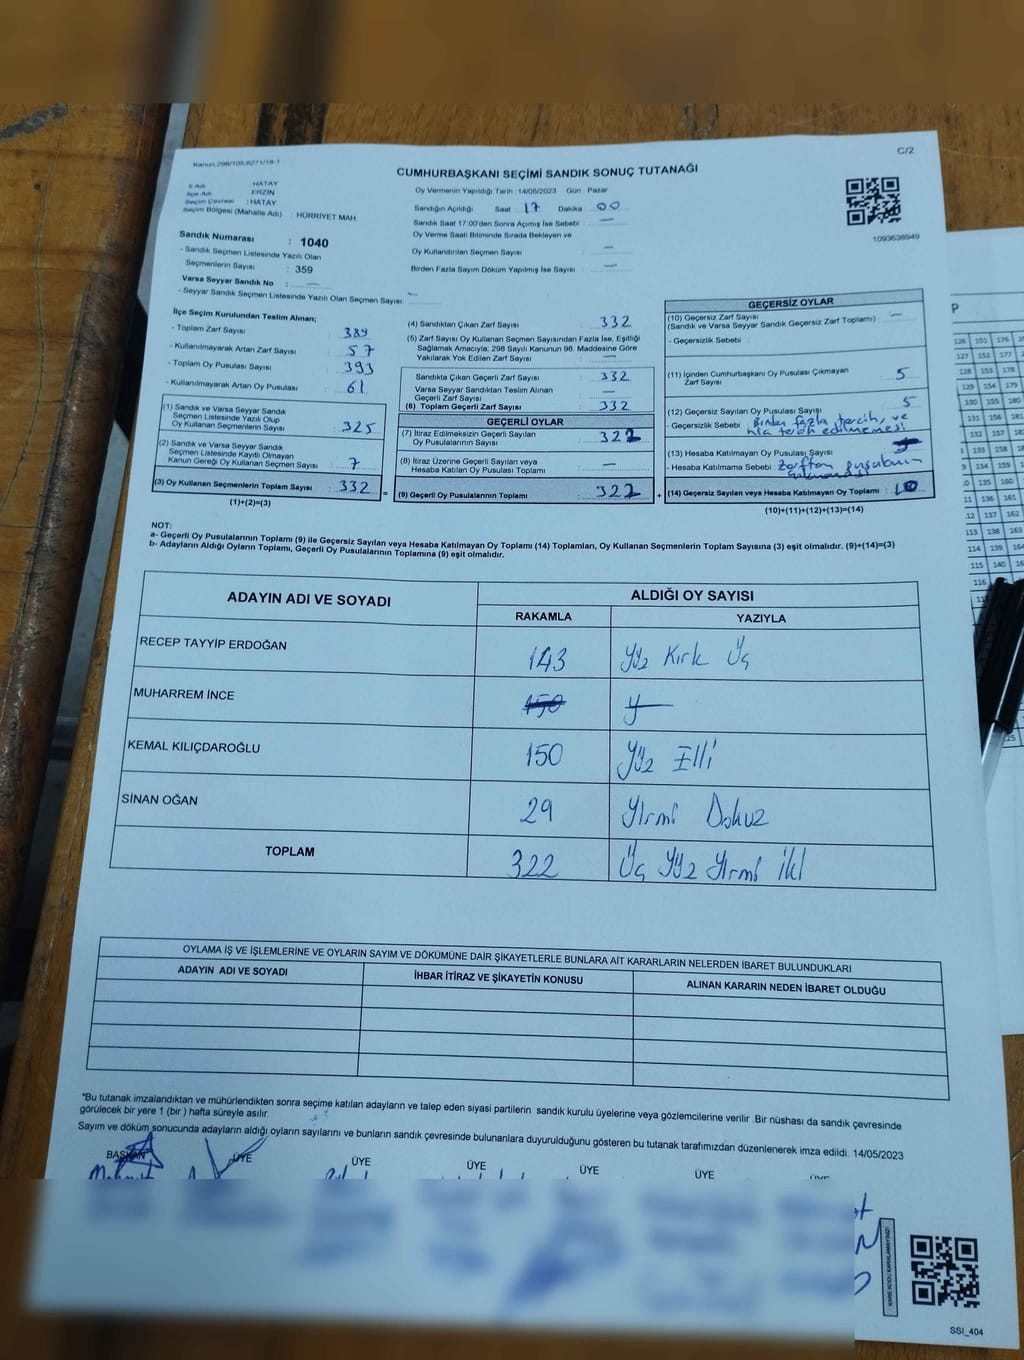 Kanun.298/105.6271/18-1
C/2
CUMHURBAŞKANI SEÇİMİ SANDIK SONUÇ TUTANAĞI
İl Adı : HATAY
İlçe Adı : ERZİN
Seçim Çevresi : HATAY
Seçim Bölgesi (Mahalle Adı) : HÜRRİYET MAH.
Sandık Numarası : 1040
- Sandık Seçmen Listesinde Yazılı Olan
Seçmenlerin Sayısı : 359
Varsa Seyyar Sandık No : —
- Seyyar Sandık Seçmen Listesinde Yazılı Olan Seçmen Sayısı: —
Oy Vermenin Yapıldığı Tarih : 14/05/2023 Gün : Pazar
Sandığın Açıldığı Saat 17 Dakika 00
Sandık Saat 17.00'den Sonra Açılmış İse Sebebi : —
Oy Verme Saati Bitiminde Sırada Bekleyen ve
Oy Kullandırılan Seçmen Sayısı —
Birden Fazla Sayım Döküm Yapılmış İse Sayısı —
1093636949
İlçe Seçim Kurulundan Teslim Alınan;
- Toplam Zarf Sayısı 389
- Kullanılmayarak Artan Zarf Sayısı 57
- Toplam Oy Pusulası Sayısı 393
- Kullanılmayarak Artan Oy Pusulası 61
(1) Sandık ve Varsa Seyyar Sandık
Seçmen Listesinde Yazılı Olup
Oy Kullanan Seçmenlerin Sayısı 325
(2) Sandık ve Varsa Seyyar Sandık
Seçmen Listesinde Kayıtlı Olmayan
Kanun Gereği Oy Kullanan Seçmen Sayısı 7
(3) Oy Kullanan Seçmenlerin Toplam Sayısı 332
(1)+(2)=(3)
(4) Sandıktan Çıkan Zarf Sayısı 332
(5) Zarf Sayısı Oy Kullanan Seçmen Sayısından Fazla İse, Eşitliği
Sağlamak Amacıyla; 298 Sayılı Kanunun 98. Maddesine Göre
Yakılarak Yok Edilen Zarf Sayısı —
Sandıkta Çıkan Geçerli Zarf Sayısı 332
Varsa Seyyar Sandıktan Teslim Alınan
Geçerli Zarf Sayısı —
(6) Toplam Geçerli Zarf Sayısı 332
GEÇERLİ OYLAR
(7) İtiraz Edilmeksizin Geçerli Sayılan
Oy Pusulasının Sayısı 322
(8) İtiraz Üzerine Geçerli Sayılan veya
Hesaba Katılan Oy Pusulası Toplamı —
= (9) Geçerli Oy Pusulalarının Toplamı 322
GEÇERSİZ OYLAR
(10) Geçersiz Zarf Sayısı —
(Sandık ve Varsa Seyyar Sandık Geçersiz Zarf Toplamı) :
- Geçersizlik Sebebi :
(11) İçinden Cumhurbaşkanı Oy Pusulası Çıkmayan
Zarf Sayısı 5
(12) Geçersiz Sayılan Oy Pusulası Sayısı 5
- Geçersizlik Sebebi Birden fazla tercih, ve
hiç tercih edilmemesi
(13) Hesaba Katılmayan Oy Pusulası Sayısı
- Hesaba Katılmama Sebebi Zarftan pusulanın
+ (14) Geçersiz Sayılan veya Hesaba Katılmayan Oy Toplamı 10
(10)+(11)+(12)+(13)=(14)
NOT:
a- Geçerli Oy Pusulalarının Toplamı (9) ile Geçersiz Sayılan veya Hesaba Katılmayan Oy Toplamı (14) Toplamları, Oy Kullanan Seçmenlerin Toplam Sayısına (3) eşit olmalıdır. (9)+(14)=(3)
b- Adayların Aldığı Oyların Toplamı, Geçerli Oy Pusulalarının Toplamına (9) eşit olmalıdır.
ADAYIN ADI VE SOYADI ALDIĞI OY SAYISI
RAKAMLA YAZIYLA
RECEP TAYYİP ERDOĞAN 143 Yüz Kırk Üç
MUHARREM İNCE 150 y
KEMAL KILIÇDAROĞLU 150 Yüz Elli
SİNAN OĞAN 29 Yirmi Dokuz
TOPLAM 322 Üç Yüz Yirmi İki
OYLAMA İŞ VE İŞLEMLERİNE VE OYLARIN SAYIM VE DÖKÜMÜNE DAİR ŞİKAYETLERLE BUNLARA AİT KARARLARIN NELERDEN İBARET BULUNDUKLARI
ADAYIN ADI VE SOYADI İHBAR İTİRAZ VE ŞİKAYETİN KONUSU ALINAN KARARIN NEDEN İBARET OLDUĞU
*Bu tutanak imzalandıktan ve mühürlendikten sonra seçime katılan adayların ve talep eden siyasi partilerin sandık kurulu üyelerine veya gözlemcilerine verilir. Bir nüshası da sandık çevresinde
görülecek bir yere 1 (bir ) hafta süreyle asılır.
Sayım ve döküm sonucunda adayların aldığı oyların sayılarını ve bunların sandık çevresinde bulunanlara duyurulduğunu gösteren bu tutanak tarafımızdan düzenlenerek imza edildi. 14/05/2023
BAŞKAN ÜYE ÜYE ÜYE ÜYE ÜYE ÜYE
KARE KODU KARALAMAYINIZ!
SSI_404